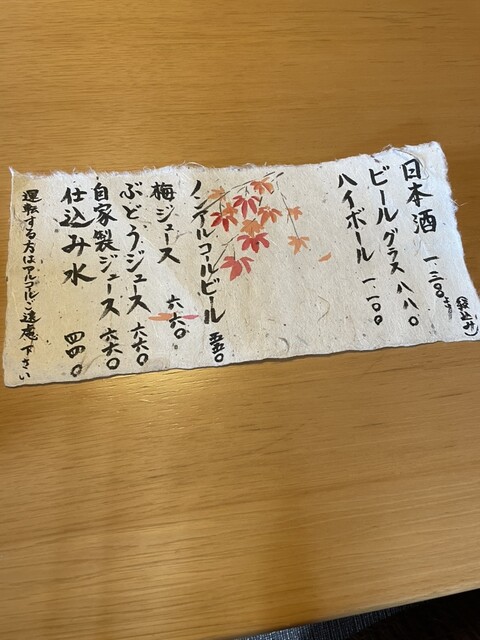 日本酒 一、三〇〇より
(税込み)
ビール グラス 八八〇
ハイボール 一、一〇〇
ノンアルコールビール 五五〇
梅ジュース 六六〇
ぶどうジュース 六六〇
自家製ジュース 六六〇
仕込み水 四四〇
運転する方はアルコールご遠慮下さい